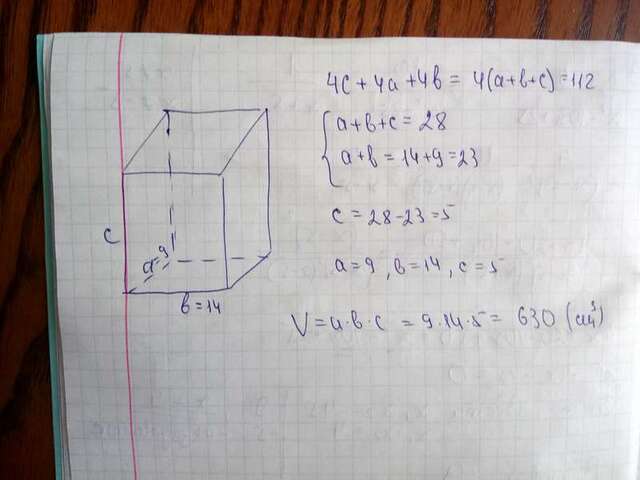 4c + 4a + 4b = 4(a+b+c) = 112
a+b+c = 28
a+b = 14+9 = 23
c = 28-23 = 5
a = 9, b = 14, c = 5
V = a·b·c = 9·14·5 = 630 (см³)
c
a=9
b = 14